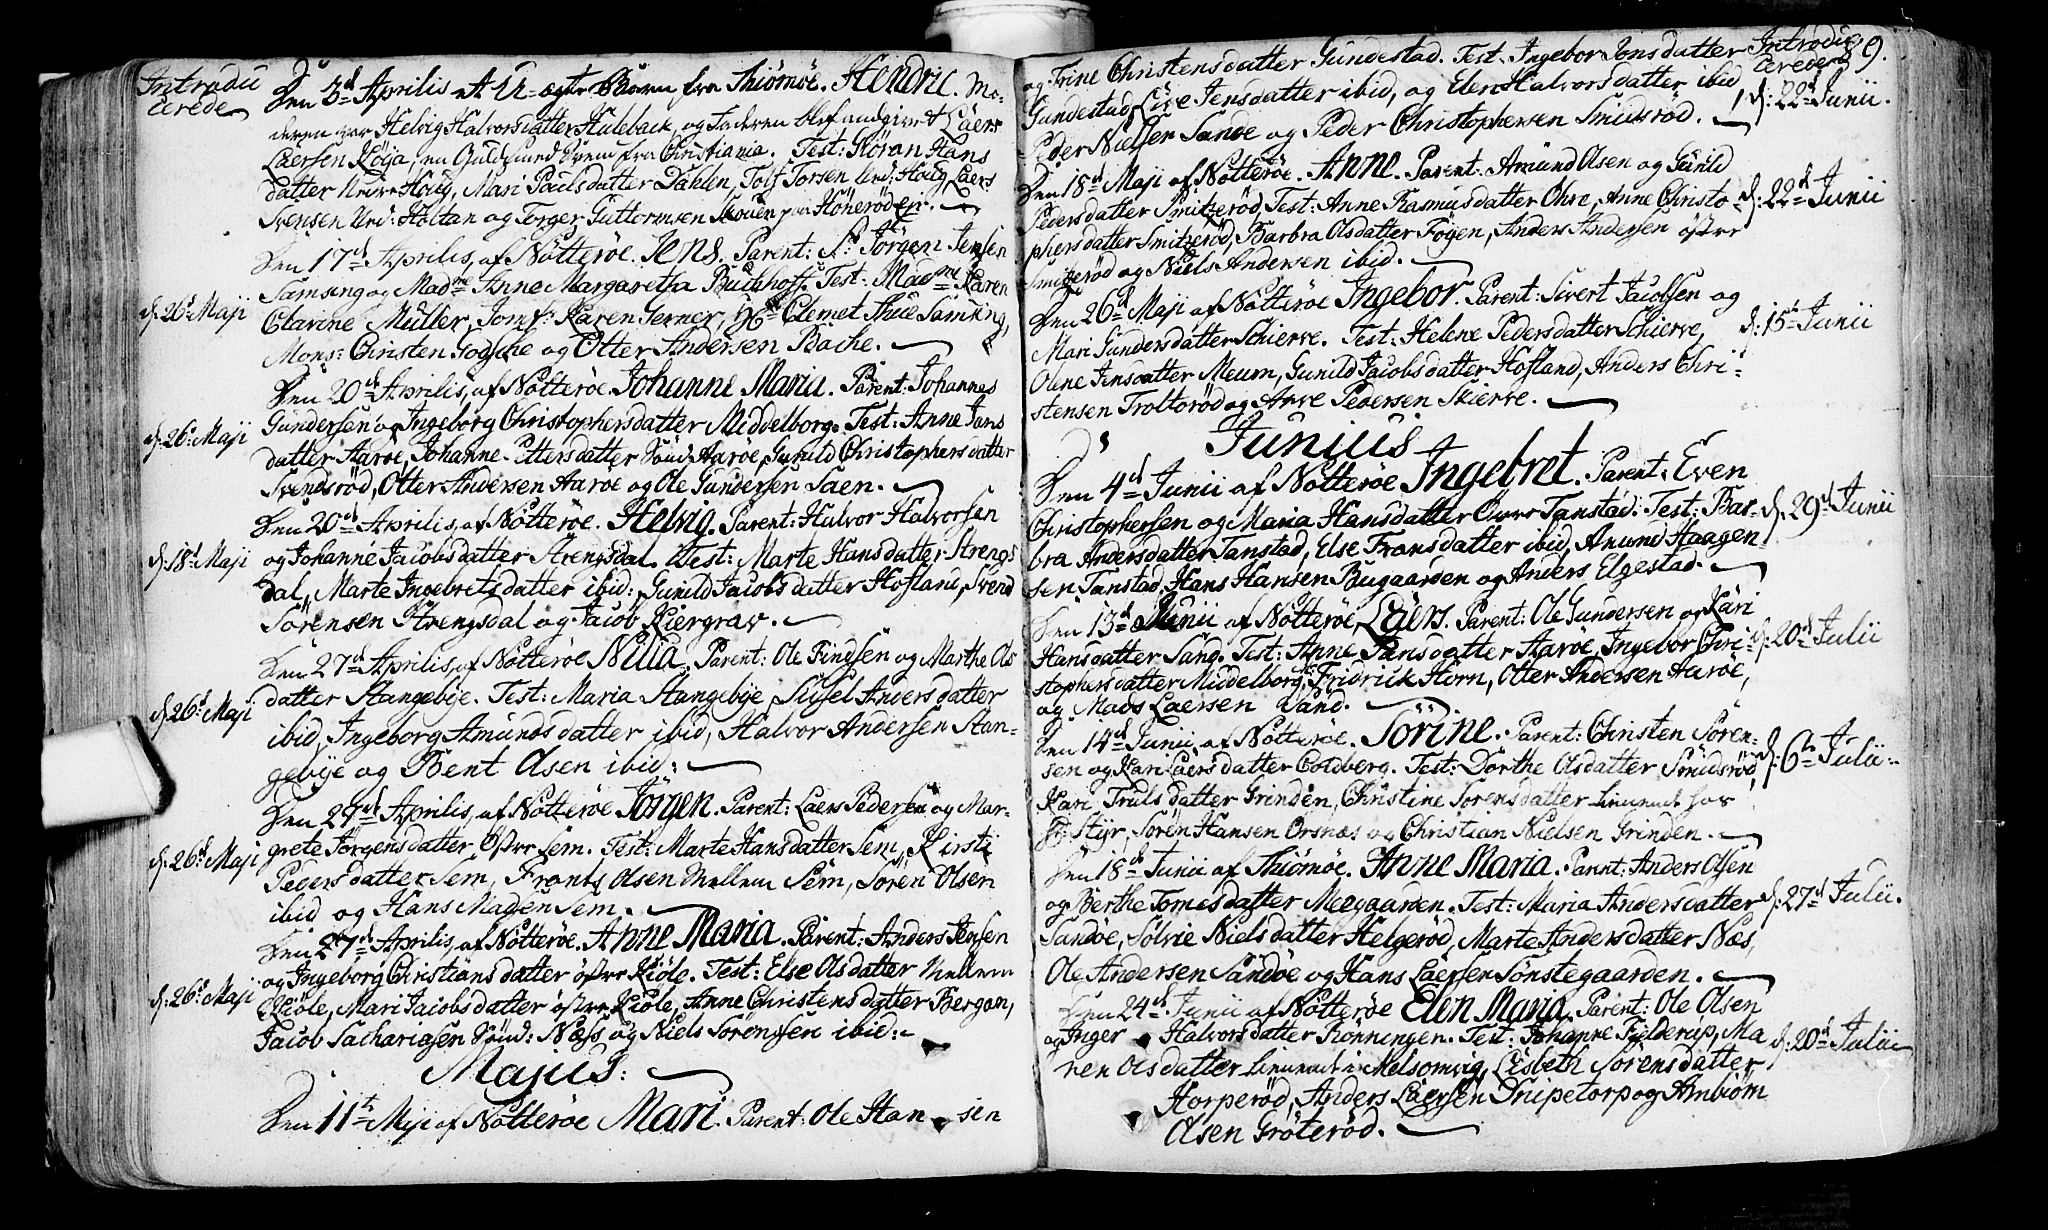 Introdu
cerede
Den 3d Aprilis et U-ægte Barn fra Thiömöe. Hendric. Mo-
deren var Helvig Halvorsdatter Hulebach og Faderen blef angivet Laers
Laersen Köya, en Guldsmed Svend fra Christiania. Test: Göran Hans
datter Nedre Houg, Mari Paulsdatter Dahlen, Tolf Torsen Ned: Houg, Laers
Svensen Ned: Holtan og Torger Guttormsen Skouen paa Hönerödejr.
Den 17d Aprilis, af Nötteröe. Jens. Parent: Sr Jörgen Jensen
d: 26d Maji
Samsing og Madme Anne Margaretha Buchhoff. Test: Madme Karen
Clarine Müller, Jomf: Karen Serner, Hr Clemet Thue Samsing,
Mons: Christen Godsche og Otter Andersen Bache.
Den 20d Aprilis, af Nötteröe Johanne Maria. Parent: Johannes
d: 26d Maji
Gundersen og Ingeborg Christophersdatter Middelborg. Test: Anne Jans
datter Aaröe, Johanne Pettersdatter Sönd: Aaröe, Gunild Christophersdatter
Svendsröd, Otter Andersen Aaröe og Ole Gundersen Saen.
Den 20d Aprilis, af Nötteröe. Helvig. Parent: Halvor Halvorsen
d: 18d Maji
og Johanne Jacobsdatter Strengsdal. Test: Marte Hansdatter Strengs
dal, Marte Ingebretsdatter ibid: Gunild Jacobsdatter Hofland, Svend
Sörensen Strengsdal og Jacob Kiergrav.
Den 27d Aprilis, af Nötteröe Nilia. Parent: Ole Findsen og Marthe Ols
d: 26d Maji
datter Stangebye. Test: Maria Stangebye, Sissel Andersdatter
ibid, Ingeborg Amundsdatter ibid, Halvor Andersen Stan-
gebye og Bent Olsen ibid:
Den 27d Aprilis, af Nötteröe Jörgen. Parent: Laers Pedersen og Mar-
d: 26d Maji
grete Jörgensdatter Östre Sem. Test: Marte Hansdatter Sem, Kirsti
Pedersdatter Sem, Frants Olsen Mellem Sem, Sören Olsen
ibid og Hans Madsen Sem.
Den 27d Aprilis, af Nötteröe. Anne Maria. Parent: Anders Jensen
d: 26d Maji
og Ingeborg Christiansdatter östre Kiöle. Test: Else Olsdatter Mellem
Kiöle, Mari Jacobsdatter östre Kiöle, Anne Christensdatter Bergan,
Jacob Zachariasen Sönd: Næss og Niels Sörensen ibid:
Majus.
Den 11te Maji af Nötteröe Mari. Parent: Ole Han-sen
Introdu
cerede
89.
og Trine Christensdatter Gundestad. Test: Ingebor Jonsdatter
Gundestad, Live Jensdatter ibid, og Elen Halvorsdatter ibid,
d: 22d Junii.
Peder Nielsen Sande og Peder Christophersen Smidsröd.
Den 18d Maji af Nötteröe. Anne. Parent: Amund Olsen og Gunild
d: 22d Junii
Pedersdatter Smitzeröd, Test: Anne Rasmusdatter Ohre, Anne Christo-
phersdatter Smitzeröd, Barbra Olsdatter Föyen, Anders Andersen östre
Smitzeröd og Niels Andersen ibid.
Den 26d Maji af Nötteröe Ingebor. Parent: Sivert Jacobsen og
d: 15de Junii
Mari Gundersdatter Schierve. Test: Helene Pedersdatter Schierve,
Olene Jensdatter Meum, Gunild Jacobsdatter Hofland, Anders Chri-
stensen Troltöröd og Arve Pedersen Skierve.
Junius
Den 4d Junii af Nötteröe Ingebret. Parent: Even
d: 29d Junii
Christophersen og Maria Hansdatter Övre Tanstad. Test: Bar-
bra Andersdatter Tanstad, Else Fransdatter ibid, Amund Haagen-
sen Tanstad, Hans Hansen Bugaarden og Anders Elgestad.
Den 13d Junii af Nötteröe Laers. Parent: Ole Gundersen og Kari
d: 20d Julii
Hansdatter Sand. Test: Anne Jansdatter Aaröe, Ingebor Chri-
stophersdatter Middelborg, Fridrich Horn, Otter Andersen Aaröe,
og Mads Laersen Sand.
Den 14d Junii, af Nötteröe. Sörine. Parent: Christen Sören-
d: 6te Julii
sen og Kari Laersdatter Goldberg. Test: Dorthe Olsdatter Smidsröd,
Kari Trulsdatter Grinden, Christine Sörensdatter tienende hos
Hr: Styr, Sören Hansen Orsnæs og Christian Nielsen Grinden.
Den 18d Junii af Thiömöe. Anne Maria. Parent: Anders Olsen
d: 27d Julii.
og Berthe Tomesdatter Meegaarden. Test: Maria Andersdatter
Sandöe, Sölvie Nielsdatter Helgeröd, Marte Andersdatter Næs,
Ole Andersen Sandöe og Hans Laersen Sönstegaarden.
Den 24d Junii af Nötteröe Elen Maria. Parent: Ole Olsen
d: 20d Julii
og Inger Halvorsdatter Rönningen. Test: Johanne Fielderup, Ma
ren Olsdatter tienende i Melsomvig, Lisbeth Sörensdatter
Horperöd, Anders Laersen Knipetorp og Arnbiörn
Olsen Gröteröd.